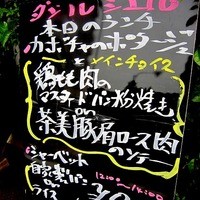 本日のランチ
カボチャのポタージュ
と メインチョイス
鶏もも肉の
マスタードパン粉焼き
or
茶美豚肩ロース肉
のソテー
シャーベット
自家製パン
or
ライス